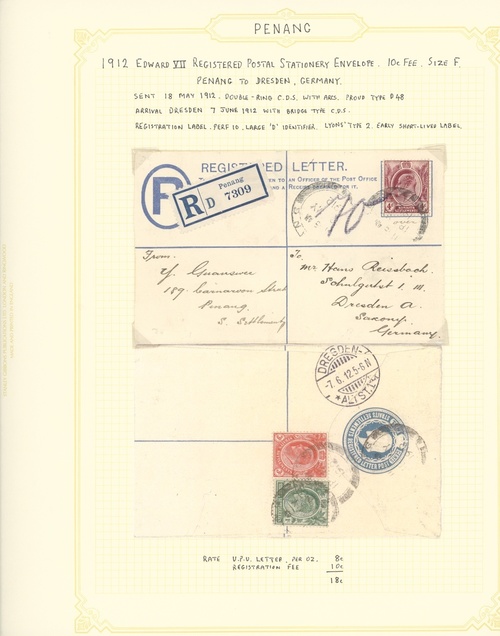 PENANG
1912 EDWARD VII REGISTERED POSTAL STATIONERY ENVELOPE. 10c FEE. SIZE F.
PENANG TO DRESDEN, GERMANY.
SENT 18 MAY 1912. DOUBLE-RING C.D.S. WITH ARCS. PROUD TYPE D48
ARRIVAL DRESDEN 7 JUNE 1912 WITH BRIDGE TYPE C.D.S.
REGISTRATION LABEL. PERF 10. LARGE 'D' IDENTIFIER. "LYONS" TYPE 2. EARLY SHORT-LIVED LABEL.
REGISTERED LETTER.
TO AN OFFICER OF THE POST OFFICE
A RECEIPT OBTAINED FOR IT.
R
Penang
R D 7309
From
189. Carnarvon Street
Penang
S. Settlements
To
Mr Hans Reissbach.
Dresden A.
Saxony.
Germany.
DRESDEN-
-7.6.12.5-6N
*ALTST.
RATE U.P.U. LETTER, PER OZ. 8c
REGISTRATION FEE 10c
18c